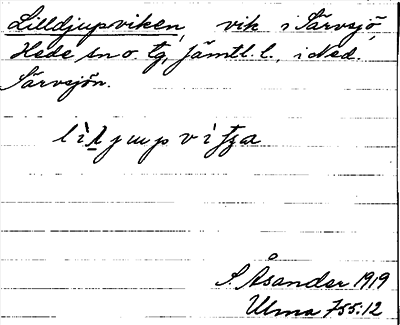 Lilldjupviken, vik i Särvsjö,
Hede sn o. tg, Jämtl. l., i Ned.
Särvsjön.
S. Åsander 1919
Ulma 755:12